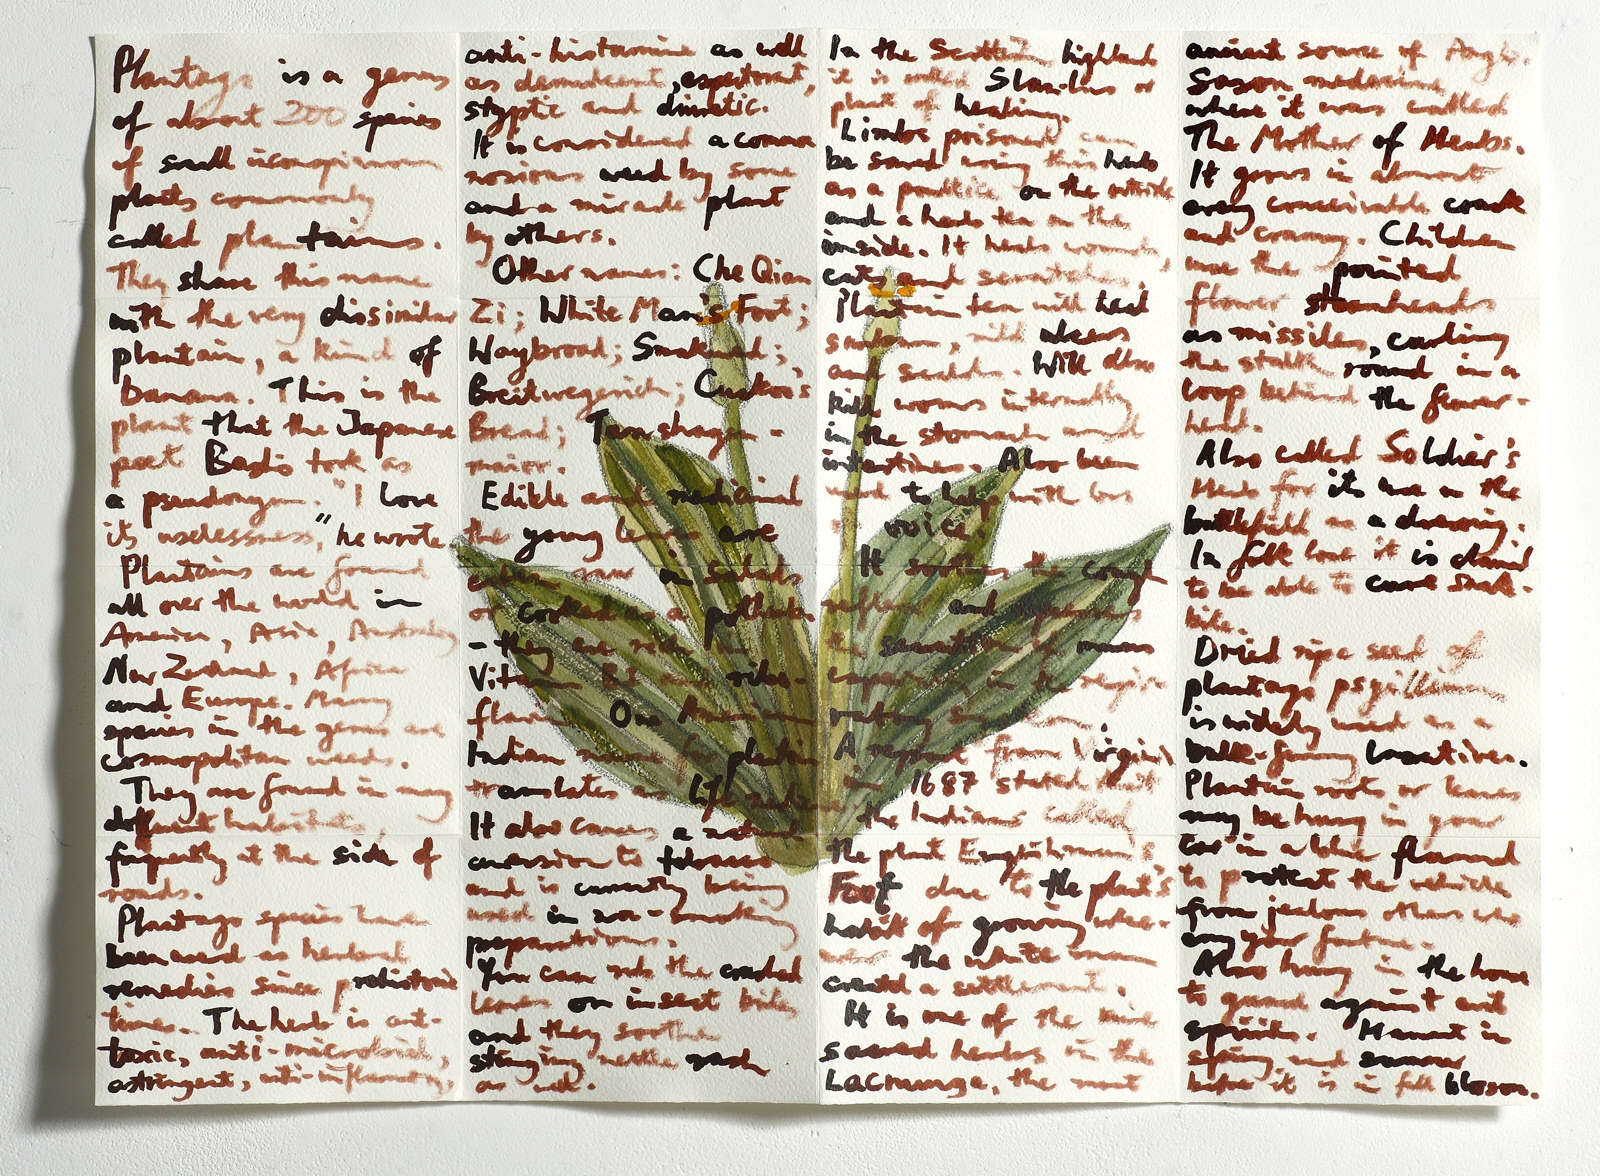 Plantago is a genus
of about 200 species
of small inconspicuous
plants commonly
called plantains.
They share this name
with the very dissimilar
plantain, a kind of
banana. This is the
plant that the Japanese
poet Basho took as
a pseudonym. "I love
its uselessness," he wrote.
Plantains are found
all over the world in
America, Asia, Australia,
New Zealand, Africa
and Europe. Many
species in the genus are
cosmopolitan weeds.
They are found in many
different habitats,
frequently at the side of
roads.
Plantago species have
been used as herbal
remedies since prehistoric
times. The herb is anti-
toxic, anti-microbial,
astringent, anti-inflammatory,
anti-histamine as well
as demulcent, expectorant,
styptic and diuretic.
It is considered a common
noxious weed by some
and a miracle plant
by others.
Other names: Che Qian
Zi; White Man's Foot;
Waybroad; Snakeweed;
Breitwegerich; Cuckoo's
Bread; Tanchagem-
maior.
Edible and medicinal
the young leaves are
eaten raw in salads
or cooked as a potherb.
- they are rich in
Vitamin B1 and ribo-
flavin. One American
Indian name for plantain
translates as life medicine.
It also causes a natural
aversion to tobacco
and is currently being
used in non-smoking
preparations.
You can rub the crushed
leaves on insect bites
and they soothe
stinging nettle rash
as well.
In the Scottish highlands
it is called Slan-lus or
plant of healing.
Limbs poisoned can
be saved using this herb
as a poultice on the outside
and a herb tea on the
inside. It heals wounds,
cuts and scratches.
Plantain tea will heal
mild ulcers
and scalds. Will also
kill worms internally
in the stomach and
intestines. Also been
used to help with loss
of voice.
It soothes the cough
reflex and increases
the secretion of mucus
especially in the
A report from Virginia
in 1687 stated that
the Indians called
the plant Englishman's
Foot due to the plant's
habit of growing where-
ever the white man
created a settlement.
It is one of the nine
sacred herbs in the
Lacnunga, the most
ancient source of Anglo-
Saxon medicine,
where it was called
The Mother of Herbs.
It grows in almost
every conceivable crack
and cranny. Children
use the pointed
flower stem heads
as missiles, curling
the stalk round in a
loop behind the flower-
head.
Also called Soldier's
Herb for its use on the
battlefield as a dressing.
In folk lore it is claimed
to be able to cure snake-
bite.
Dried ripe seed of
plantago psyllium
is widely used as a
bulk-forming laxative.
Plantain roots or leaves
may be hung in your
car in a blue flannel
to protect the vehicle
from jealous others who
envy your fortune.
Also hung in the house
to guard against evil
spirits. Harvest in
spring and summer
before it is in full blossom.